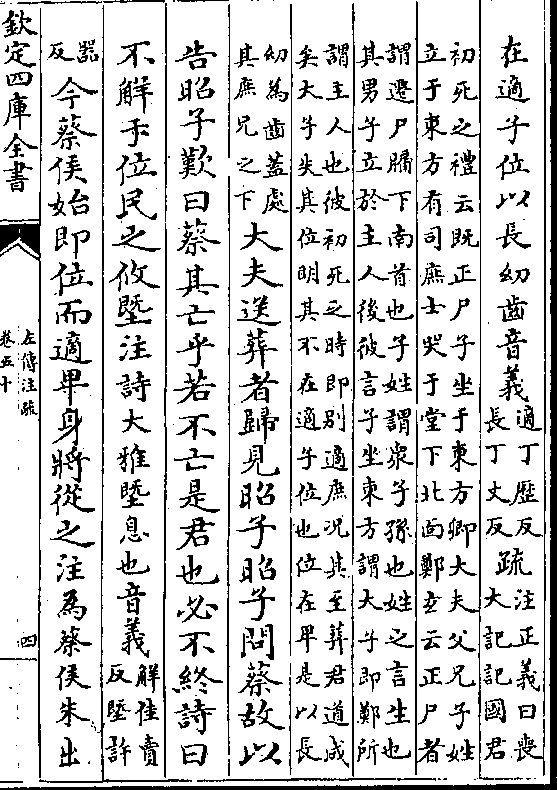 在適子位以長幼齒音義適丁歷反長丁丈反疏注正義曰喪大記記國君
初死之禮云既正尸子坐于東方卿大夫父兄子姓
立于東方有司庶士哭于堂下北面鄭玄云正尸者
謂遷尸牖下南首也子姓謂衆子孫也姓之言生也
其男子立於主人後彼言子坐東方謂大子即鄭所
謂主人也彼初死之時即別適庶况其至葬君道成
矣大子失其位明其不在適子位也位在卑是以長
幼為齒蓋處其庶兄之下大夫送葬者歸見昭子昭子問蔡故以
告昭子歎曰蔡其亡乎若不亡是君也必不終詩曰
不解于位民之攸墍注詩大雅墍息也音義解佳賣反墍許
器反今蔡侯始即位而適卑身將從之注為蔡侯朱出
欽定四庫全書
左傳注疏
卷五十
四